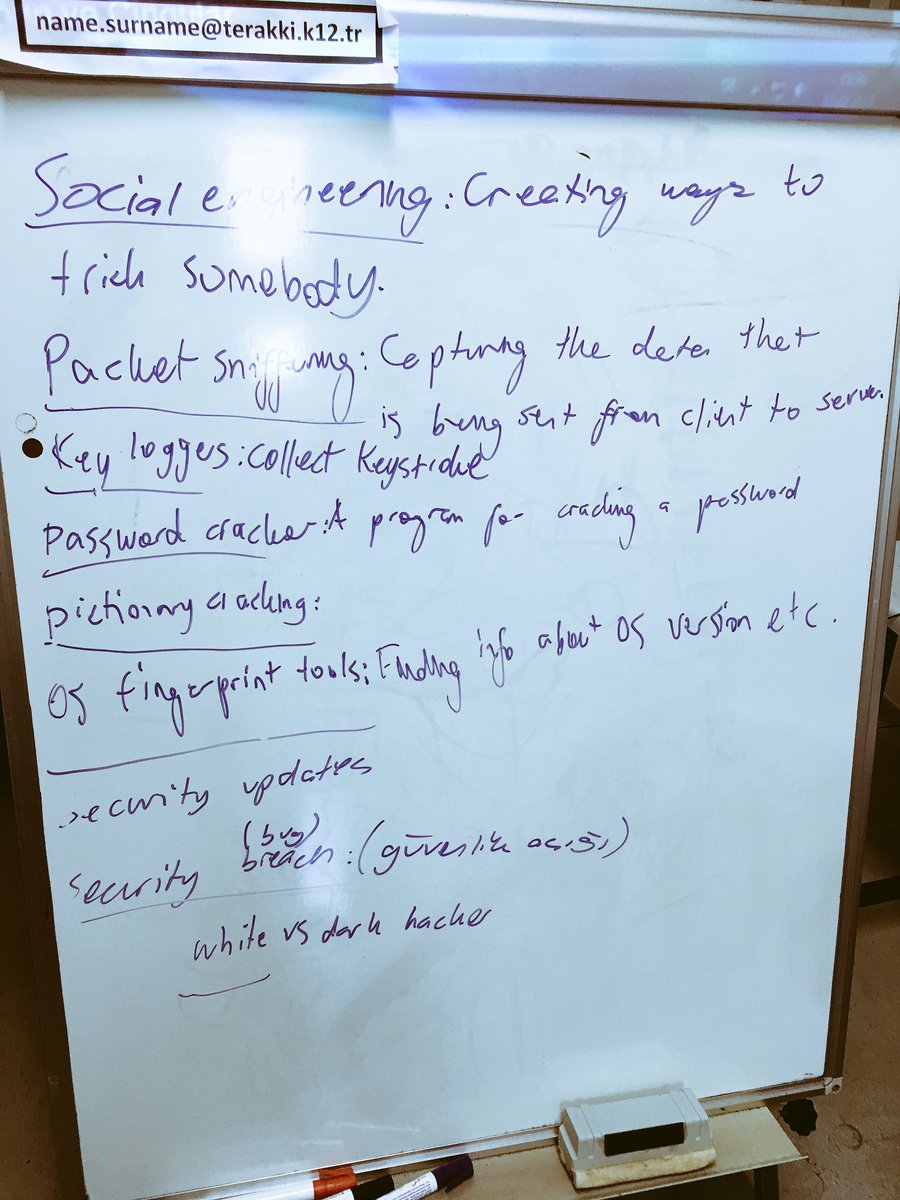 name.surname@terakki.k12.tr
Social engineering: Creating ways to
trick somebody.
Packet sniffing: Capturing the data that
is being sent from client to server.
Key loggers: collect keystroke
Password cracker: A program for cracking a password
Dictionary cracking:
OS fingerprint tools: Finding info about OS version etc.
security updates
(bug)
security breach: (güvenlik açığı)
white vs dark hacker